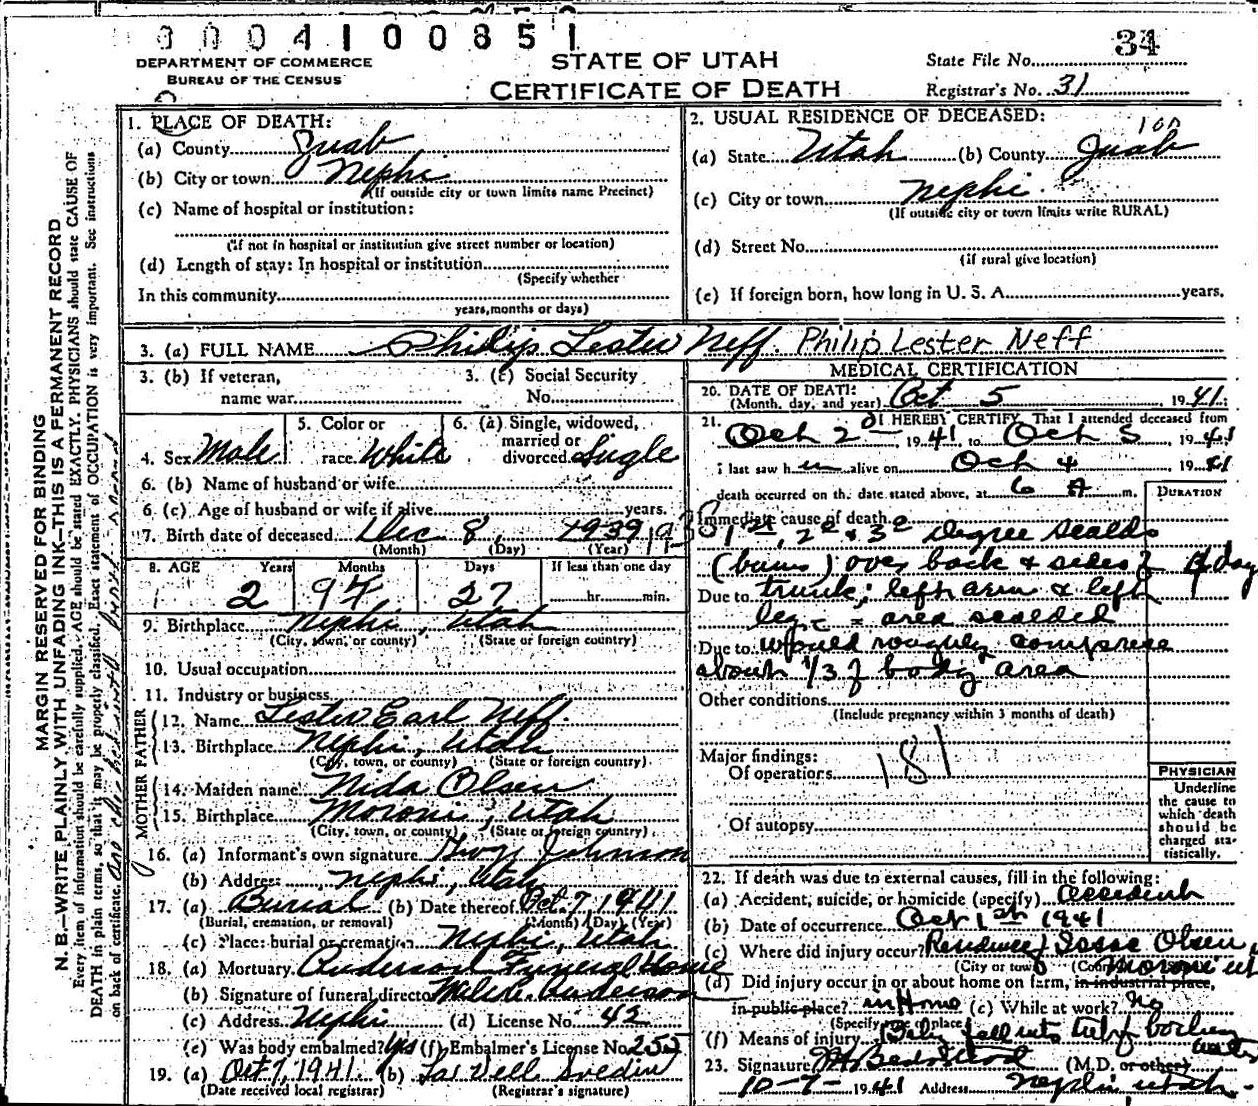 0004100851
DEPARTMENT OF COMMERCE
BUREAU OF THE CENSUS
STATE OF UTAH
CERTIFICATE OF DEATH
State File No. 34
Registrar's No. 31
MARGIN RESERVED FOR BINDING
N. B.—WRITE PLAINLY WITH UNFADING INK—THIS IS A PERMANENT RECORD
Every item of information should be carefully supplied. AGE should be stated EXACTLY. PHYSICIANS should state CAUSE OF
DEATH in plain terms, so that it may be properly classified. Exact statement of OCCUPATION is very important. See instructions
on back of certificate.
1. PLACE OF DEATH:
(a) County Juab
(b) City or town Nephi
(If outside city or town limits name Precinct)
(c) Name of hospital or institution:
(if not in hospital or institution give street number or location)
(d) Length of stay: In hospital or institution
(Specify whether
In this community
years, months or days)
2. USUAL RESIDENCE OF DECEASED:
(a) State Utah (b) County Juab
(c) City or town Nephi
(If outside city or town limits write RURAL)
(d) Street No.
(if rural give location)
(e) If foreign born, how long in U. S. A. years.
3. (a) FULL NAME Philip Lester Neff. Philip Lester Neff
3. (b) If veteran,
name war
3. (c) Social Security
No.
4. Sex Male
5. Color or
race White
6. (a) Single, widowed,
married or
divorced Single
6. (b) Name of husband or wife
6. (c) Age of husband or wife if alive years.
7. Birth date of deceased Dec 8, 1939
(Month) (Day) (Year)
8. AGE Years Months Days If less than one day
2 9 27 hr. min.
9. Birthplace Nephi, Utah
(City, town, or county) (State or foreign country)
10. Usual occupation
11. Industry or business
FATHER
12. Name Lester Earl Neff.
13. Birthplace Nephi, Utah
(City, town, or county) (State or foreign country)
MOTHER
14. Maiden name Nida Olsen
15. Birthplace Moroni, Utah
(City, town, or county) (State or foreign country)
16. (a) Informant's own signature Johnson
(b) Address Nephi, Utah
17. (a) Burial (b) Date thereof Oct 7, 1941
(Burial, cremation, or removal) (Month) (Day) (Year)
(c) Place: burial or cremation Nephi, Utah
18. (a) Mortuary Anderson Funeral Home
(b) Signature of funeral director Anderson
(c) Address Nephi (d) License No. 42
(e) Was body embalmed? Yes (f) Embalmer's License No. 252
19. (a) Oct 7, 1941. (b)
(Date received local registrar) (Registrar's signature)
MEDICAL CERTIFICATION
20. DATE OF DEATH: Oct 5 1941.
(Month, day, and year)
21. I HEREBY CERTIFY, That I attended deceased from
Oct 2 1941 to Oct 5 1941
I last saw him alive on Oct 4 1941
death occurred on the date stated above, at 6 A m.
DURATION
Immediate cause of death
1st, 2d & 3d degree scalds
(burns) over back & sides of
4 day
Due to trunk; left arm & left
leg = area scalded
Due to would roughly comprise
about 1/3 of body area
Other conditions
(Include pregnancy within 3 months of death)
Major findings:
Of operations 181
Of autopsy
PHYSICIAN
Underline
the cause to
which death
should be
charged sta-
tistically.
22. If death was due to external causes, fill in the following:
(a) Accident, suicide, or homicide (specify) accident
(b) Date of occurrence Oct 1st 1941
(c) Where did injury occur? Residence of Isaac Olsen,
(City or town) Moroni Ut
(d) Did injury occur in or about home on farm, in industrial place,
in public place? in Home (e) While at work? No
(Specify type of place)
(f) Means of injury Baby fell into tub of boiling
water
23. Signature (M.D. or other)
10-7-1941 Address Nephi, Utah